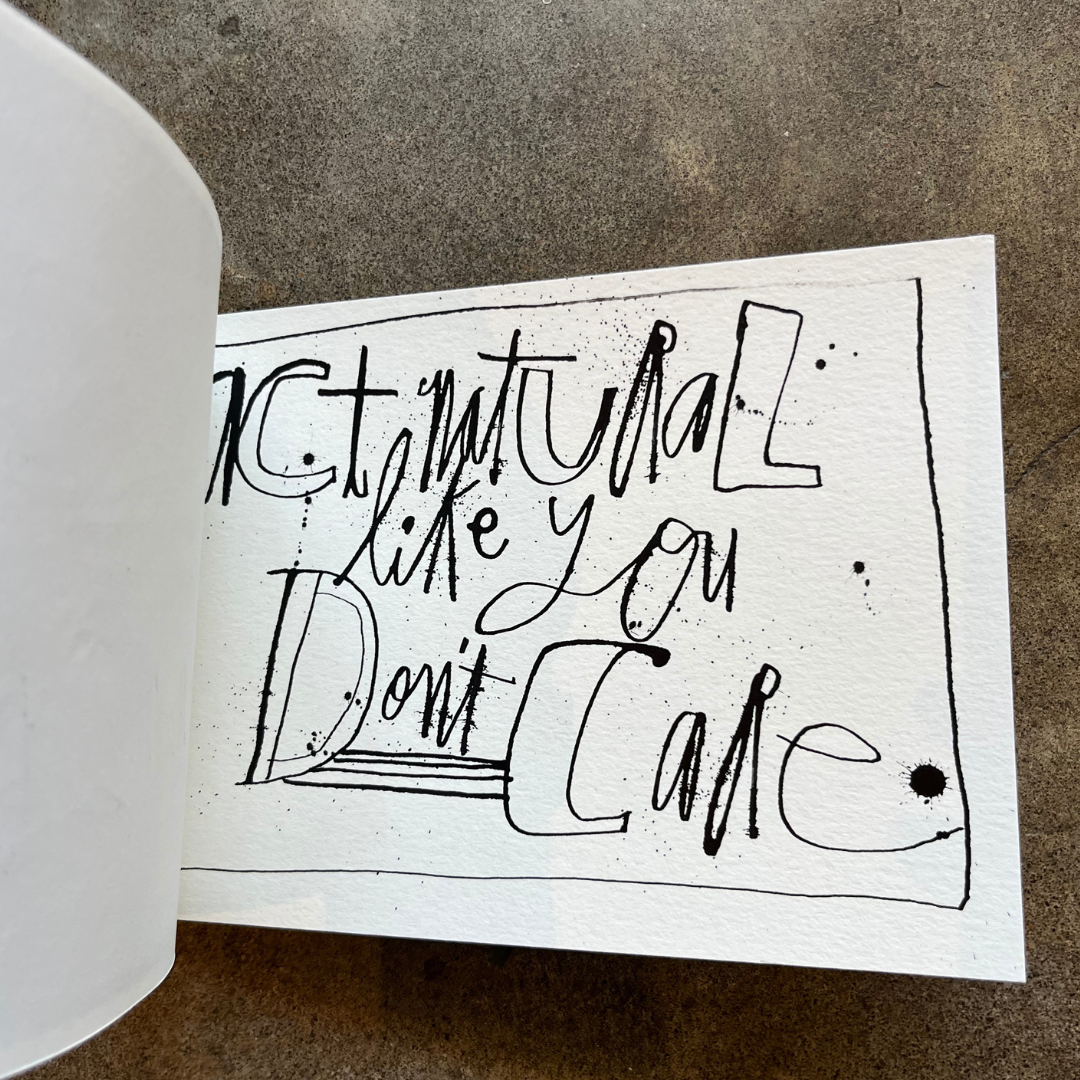 Act natuRaL
like you
Don't
Care